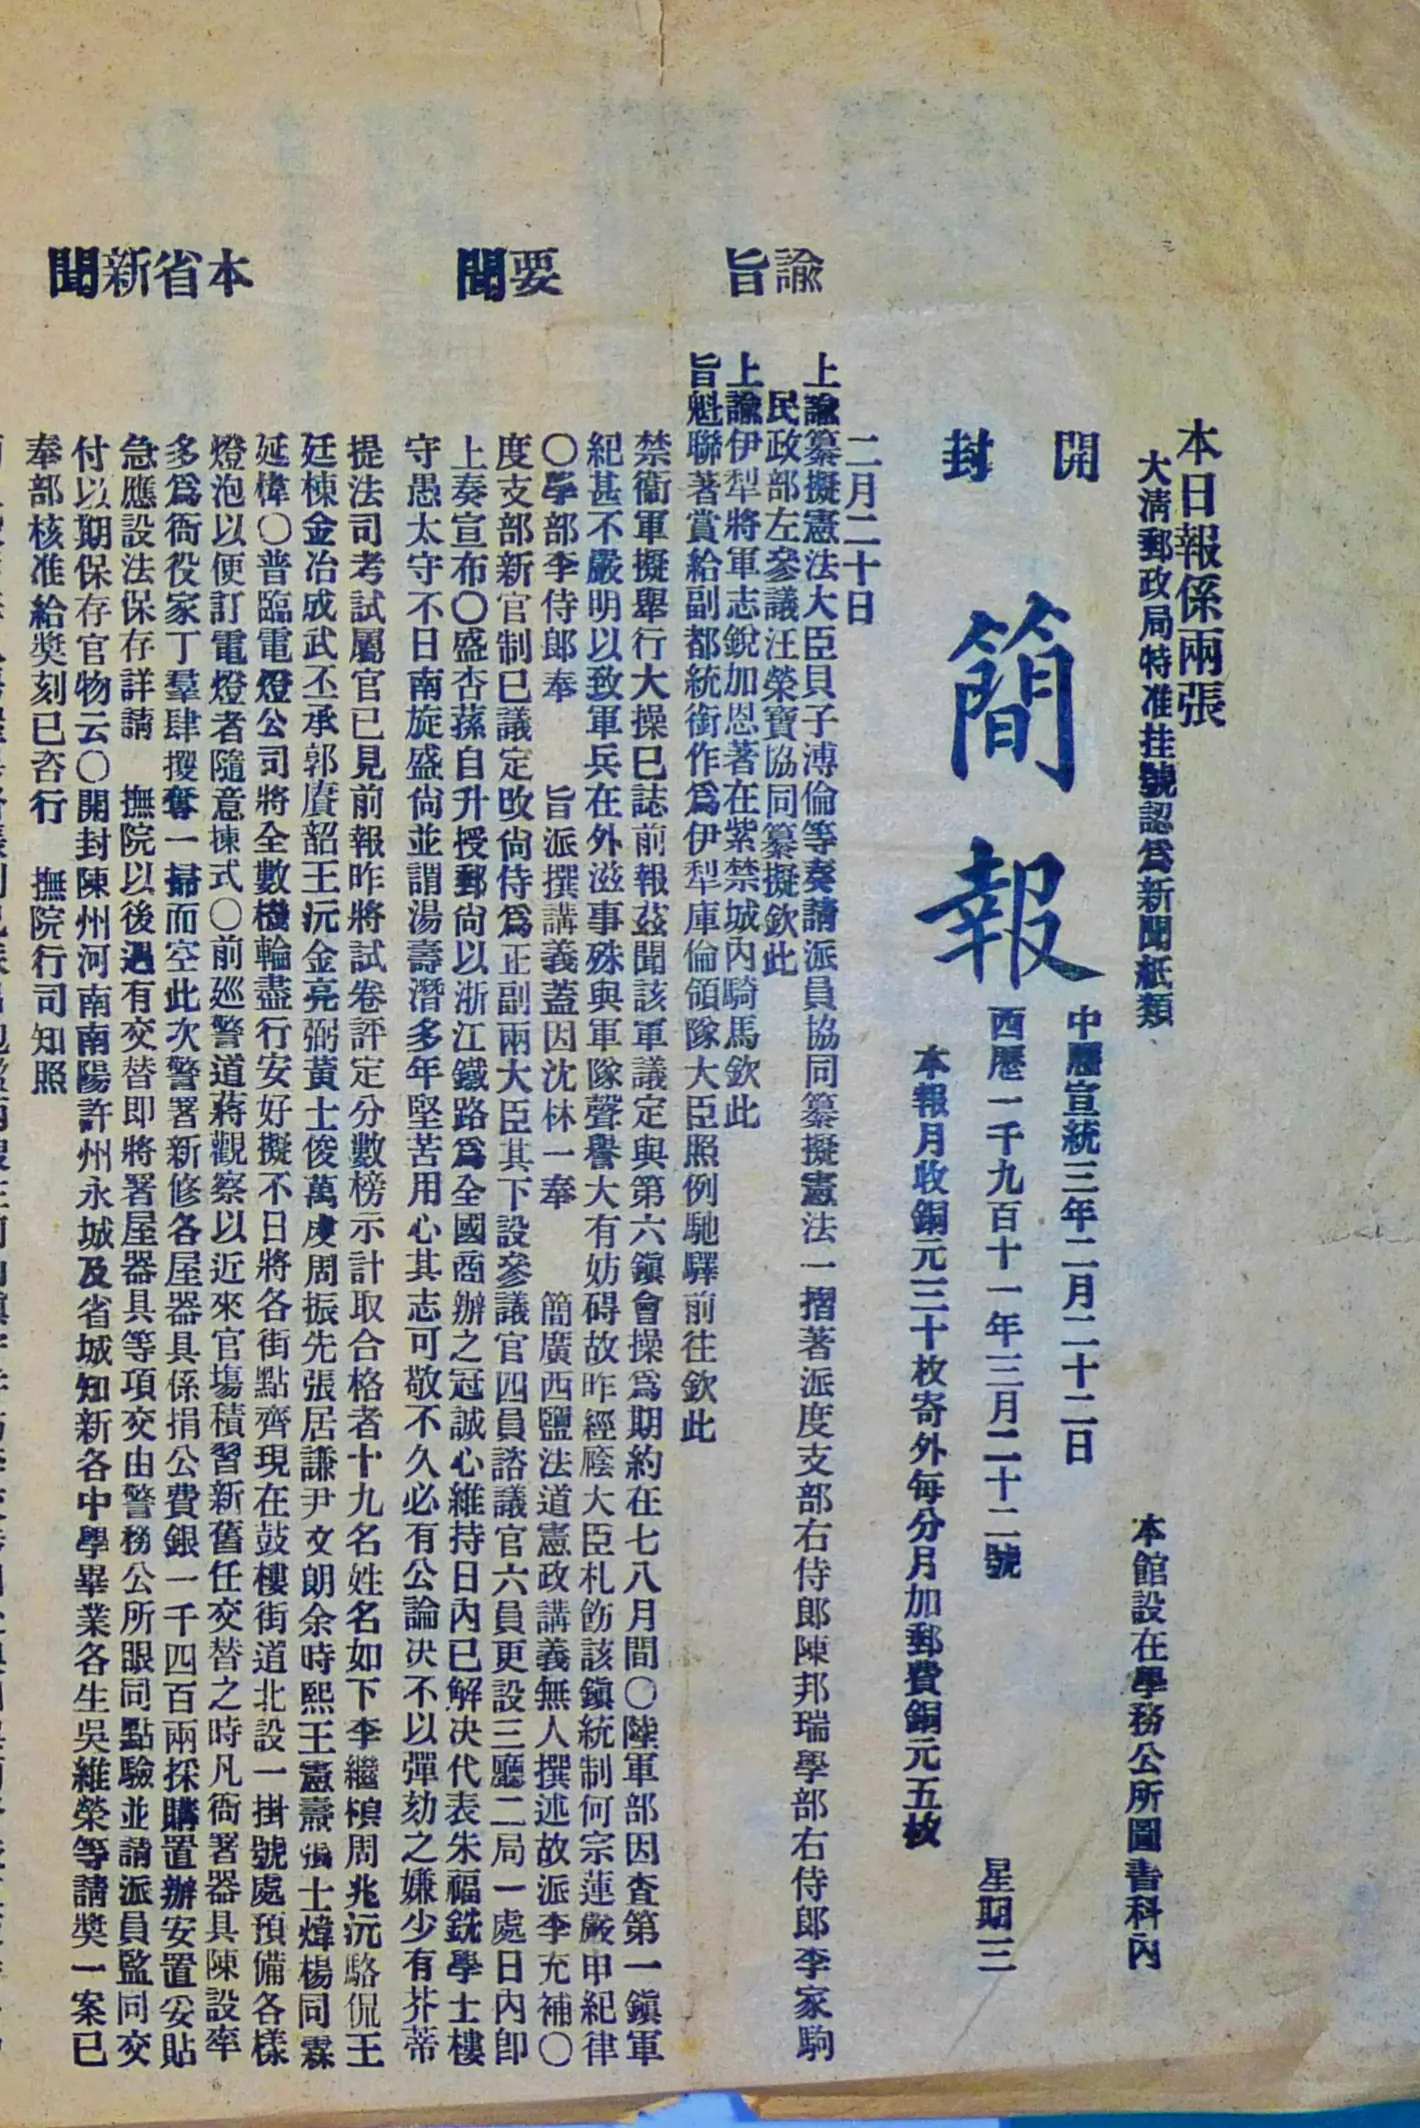 本日報係兩張
大清郵政局特准挂號認爲新聞紙類
本館設在學務公所圖書科內
開封
簡報
中曆宣統三年二月二十二日
西歷一千九百十一年三月二十二號
星期三
本報月收銅元三十枚寄外每分月加郵費銅元五枚
諭旨
二月二十日
上諭纂擬憲法大臣貝子溥倫等奏請派員協同纂擬憲法一摺著派度支部右侍郎陳邦瑞學部右侍郎李家駒
民政部左參議汪榮寶協同纂擬欽此
上諭伊犁將軍志銳加恩著在紫禁城內騎馬欽此
旨魁聯著賞給副都統銜作爲伊犁庫倫領隊大臣照例馳驛前往欽此
要聞
禁衞軍擬舉行大操已誌前報茲聞該軍議定與第六鎭會操爲期約在七八月間〇陸軍部因查第一鎭軍
紀甚不嚴明以致軍兵在外滋事殊與軍隊聲譽大有妨碍故昨經廕大臣札飭該鎭統制何宗蓮嚴申紀律
〇學部李侍郎奉 旨派撰講義蓋因沈林一奉 簡廣西鹽法道憲政講義無人撰述故派李充補〇
度支部新官制已議定改尙侍爲正副兩大臣其下設參議官四員諮議官六員更設三廳二局一處日內卽
上奏宣布〇盛杏蓀自升授郵尙以浙江鐵路爲全國商辦之冠誠心維持日內已解决代表朱福銑學士樓
守愚太守不日南旋盛尙並謂湯壽潛多年堅苦用心其志可敬不久必有公論决不以彈劾之嫌少有芥蒂
本省新聞
提法司考試屬官已見前報昨將試卷評定分數榜示計取合格者十九名姓名如下李繼楨周兆沅駱侃王
廷棟金冶成武丕承郭賡韶王沅金亮弼黃士俊萬虔周振先張居謙尹文朗余時熙王憲燾張士煒楊同霖
延樟〇普臨電燈公司將全數機輪盡行安好擬不日將各街點齊現在鼓樓街道北設一掛號處預備各樣
燈泡以便訂電燈者隨意揀式〇前巡警道蔣觀察以近來官塲積習新舊任交替之時凡衙署器具陳設率
多爲衙役家丁羣肆攫奪一掃而空此次警署新修各屋器具係捐公費銀一千四百兩採購置辦安置妥貼
急應設法保存詳請 撫院以後遇有交替即將署屋器具等項交由警務公所眼同點驗並請派員監同交
付以期保存官物云〇開封陳州河南南陽許州永城及省城知新各中學畢業各生吳維榮等請獎一案已
奉部核准給獎刻已咨行 撫院行司知照